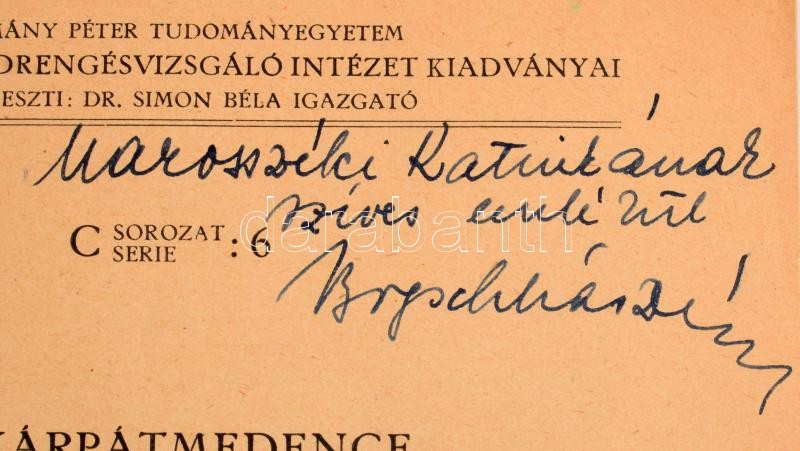 MÁNY PÉTER TUDOMÁNYEGYETEM
DRENGÉSVIZSGÁLÓ INTÉZET KIADVÁNYAI
ESZTI: DR. SIMON BÉLA IGAZGATÓ
Marosszéki Katinkának
szíves emlékül
C SOROZAT
SERIE : 6
darabanth
KÁRPÁTMEDENCE